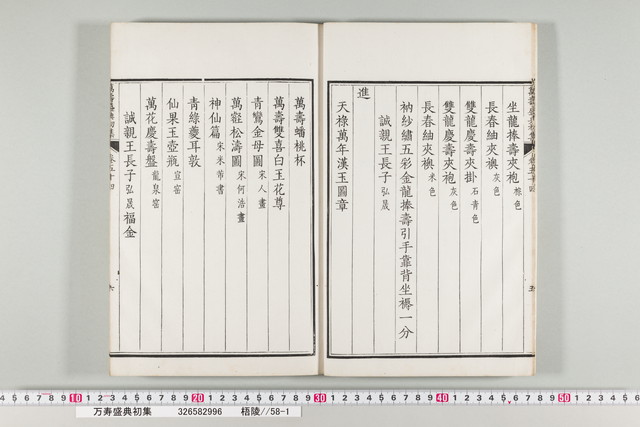 坐龍捧壽夾袍 棕色
長春紬夾襖 灰色
雙龍慶壽夾掛 石青色
雙龍慶壽夾袍 灰色
長春紬夾襖 米色
衲紗繡五彩金龍捧壽引手靠背坐褥一分
誠親王長子 弘晟
進
天祿萬年漢玉圖章
萬壽蟠桃杯
萬壽雙喜白玉花尊
青鸞金母圖 宋人畫
萬壑松濤圖 宋何浩畫
神仙篇 宋米芾書
青綠夔耳敦
仙果玉壺瓶 宣窑
萬花慶壽盤 龍泉窑
誠親王長子 弘晟 福金
六
五
10 20 30 40 50
万寿盛典初集 326582996 梧陵//58-1